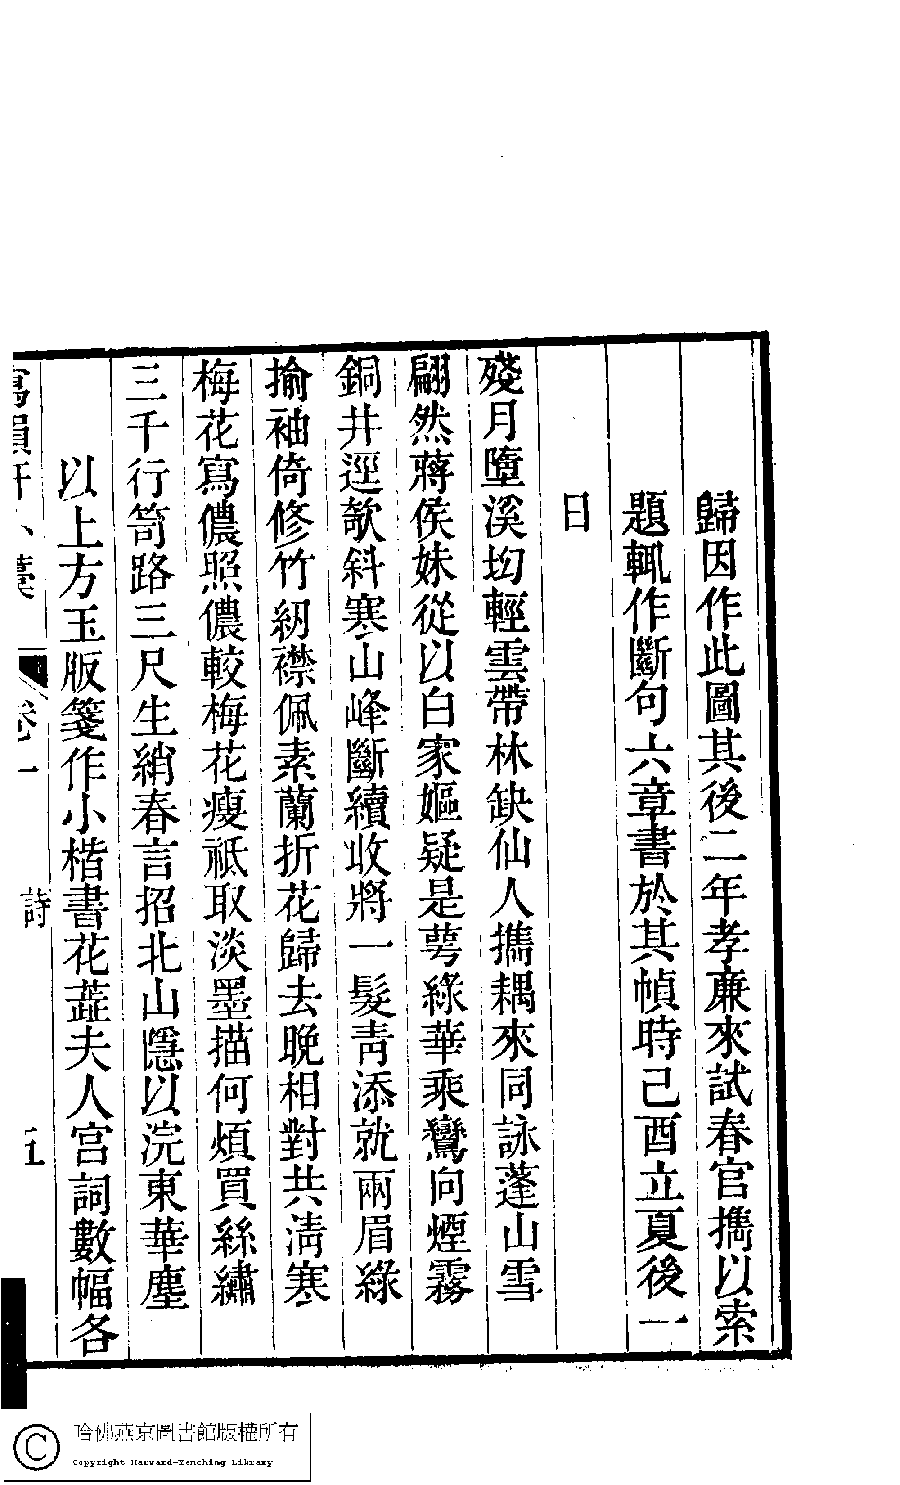 歸因作此圖其後二年孝廉來試春官攜以索
題輒作斷句六章書於其幀時己酉立夏後一
日
殘月墮溪坳輕雲帶林缺仙人攜耦來同詠蓬山雪
翩然蔣侯妹從以白家嫗疑是萼綠華乘鸞向煙霧
銅井逕欹斜寒山峰斷續收將一髮青添就兩眉綠
揄袖倚修竹紉襟佩素蘭折花歸去晚相對共清寒
梅花寫儂照儂較梅花瘦祗取淡墨描何煩買絲繡
三千行笥路三尺生綃春言招北山隱以浣東華塵
以上方玉版箋作小楷書花蕋夫人宮詞數幅各
寫韻軒小藁
卷一
詩
五
哈佛燕京圖書館版權所有
Copyright Harvard-Yenching Library